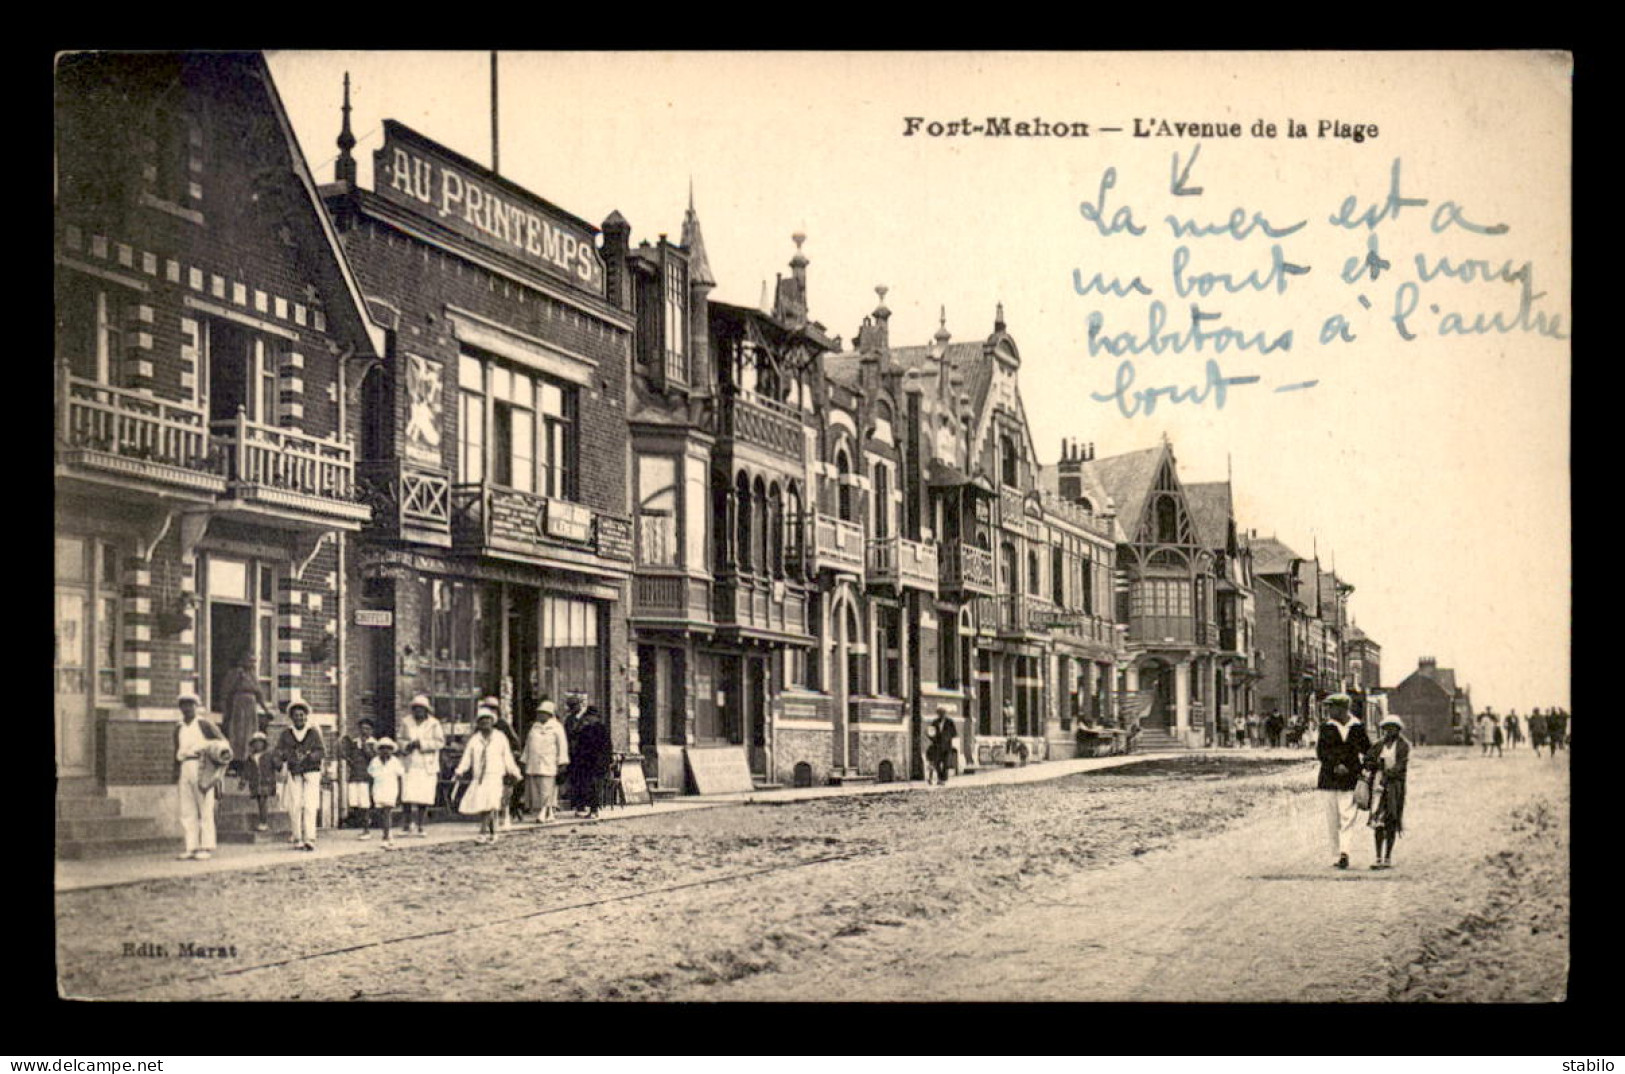 Fort-Mahon — L'Avenue de la Plage
La mer est a
un bout et nous
habitons à l'autre
bout —
AU PRINTEMPS
COIFFEUR
Edit. Marat
delcampe.net
stabilo